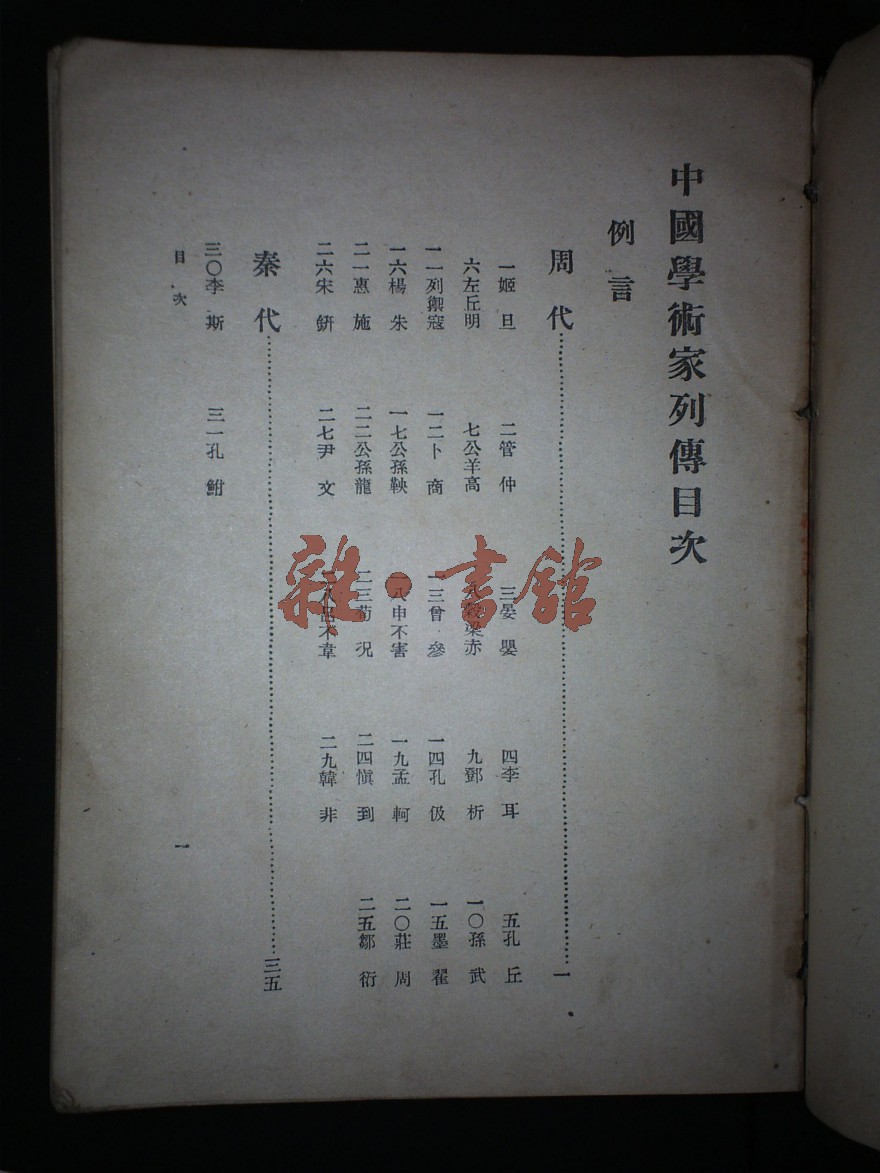 中國學術家列傳目次
例言
周代……一
一姬旦 二管仲 三晏嬰 四李耳 五孔丘
六左丘明 七公羊高 梁赤 九鄧析 一〇孫武
一一列禦寇 一二卜商 一三曾參 一四孔伋 一五墨翟
一六楊朱 一七公孫鞅 一八申不害 一九孟軻 二〇莊周
二一惠施 二二公孫龍 二三荀況 二四愼到 二五鄒衍
二六宋鈃 二七尹文 二八呂不韋 二九韓非
秦代……三五
三〇李斯 三一孔鮒
目次 一
雜·書館